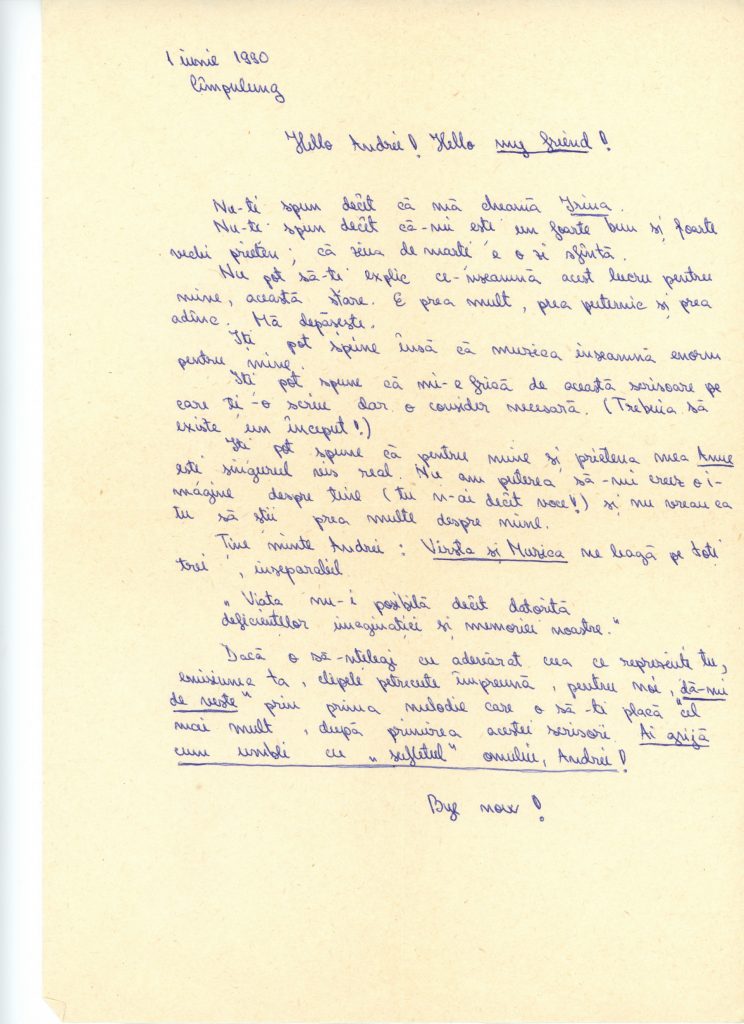 1 iunie 1990
Cîmpulung
Hello Andrei! Hello my friend!
Nu-ți spun decît că mă cheamă Irina.
Nu-ți spun decît că-mi ești un foarte bun și foarte
vechi prieten; că ziua de marți e o zi sfîntă.
Nu pot să-ți explic ce-nseamnă acest lucru pentru
mine, această stare. E prea mult, prea puternic și prea
adînc. Mă depășește.
Iți pot spune însă că muzica înseamnă enorm
pentru mine.
Iți pot spune că mi-e frică de această scrisoare pe
care ți-o scriu dar o consider necesară. (Trebuia să
existe un început!)
Iți pot spune că pentru mine și prietena mea Anne
ești singurul vis real. Nu am puterea să-mi creez o i-
magine despre tine (tu n-ai decît voce!) și nu vreau ca
tu să știi prea multe despre mine.
Ține minte Andrei: Vîrsta și Muzica ne leagă pe toți
trei, inseparabil.
„Viața nu-i posibilă decît datorită
deficiențelor imaginației și memoriei noastre."
Dacă o să-nțelegi cu adevărat ceea ce reprezinți tu,
emisiunea ta, clipele petrecute împreună, pentru noi, dă-mi
de veste prin prima melodie care o să-ți placă cel
mai mult, după primirea acestei scrisori. Ai grijă
cum umbli cu „sufletul" omului, Andrei!
Bye now!